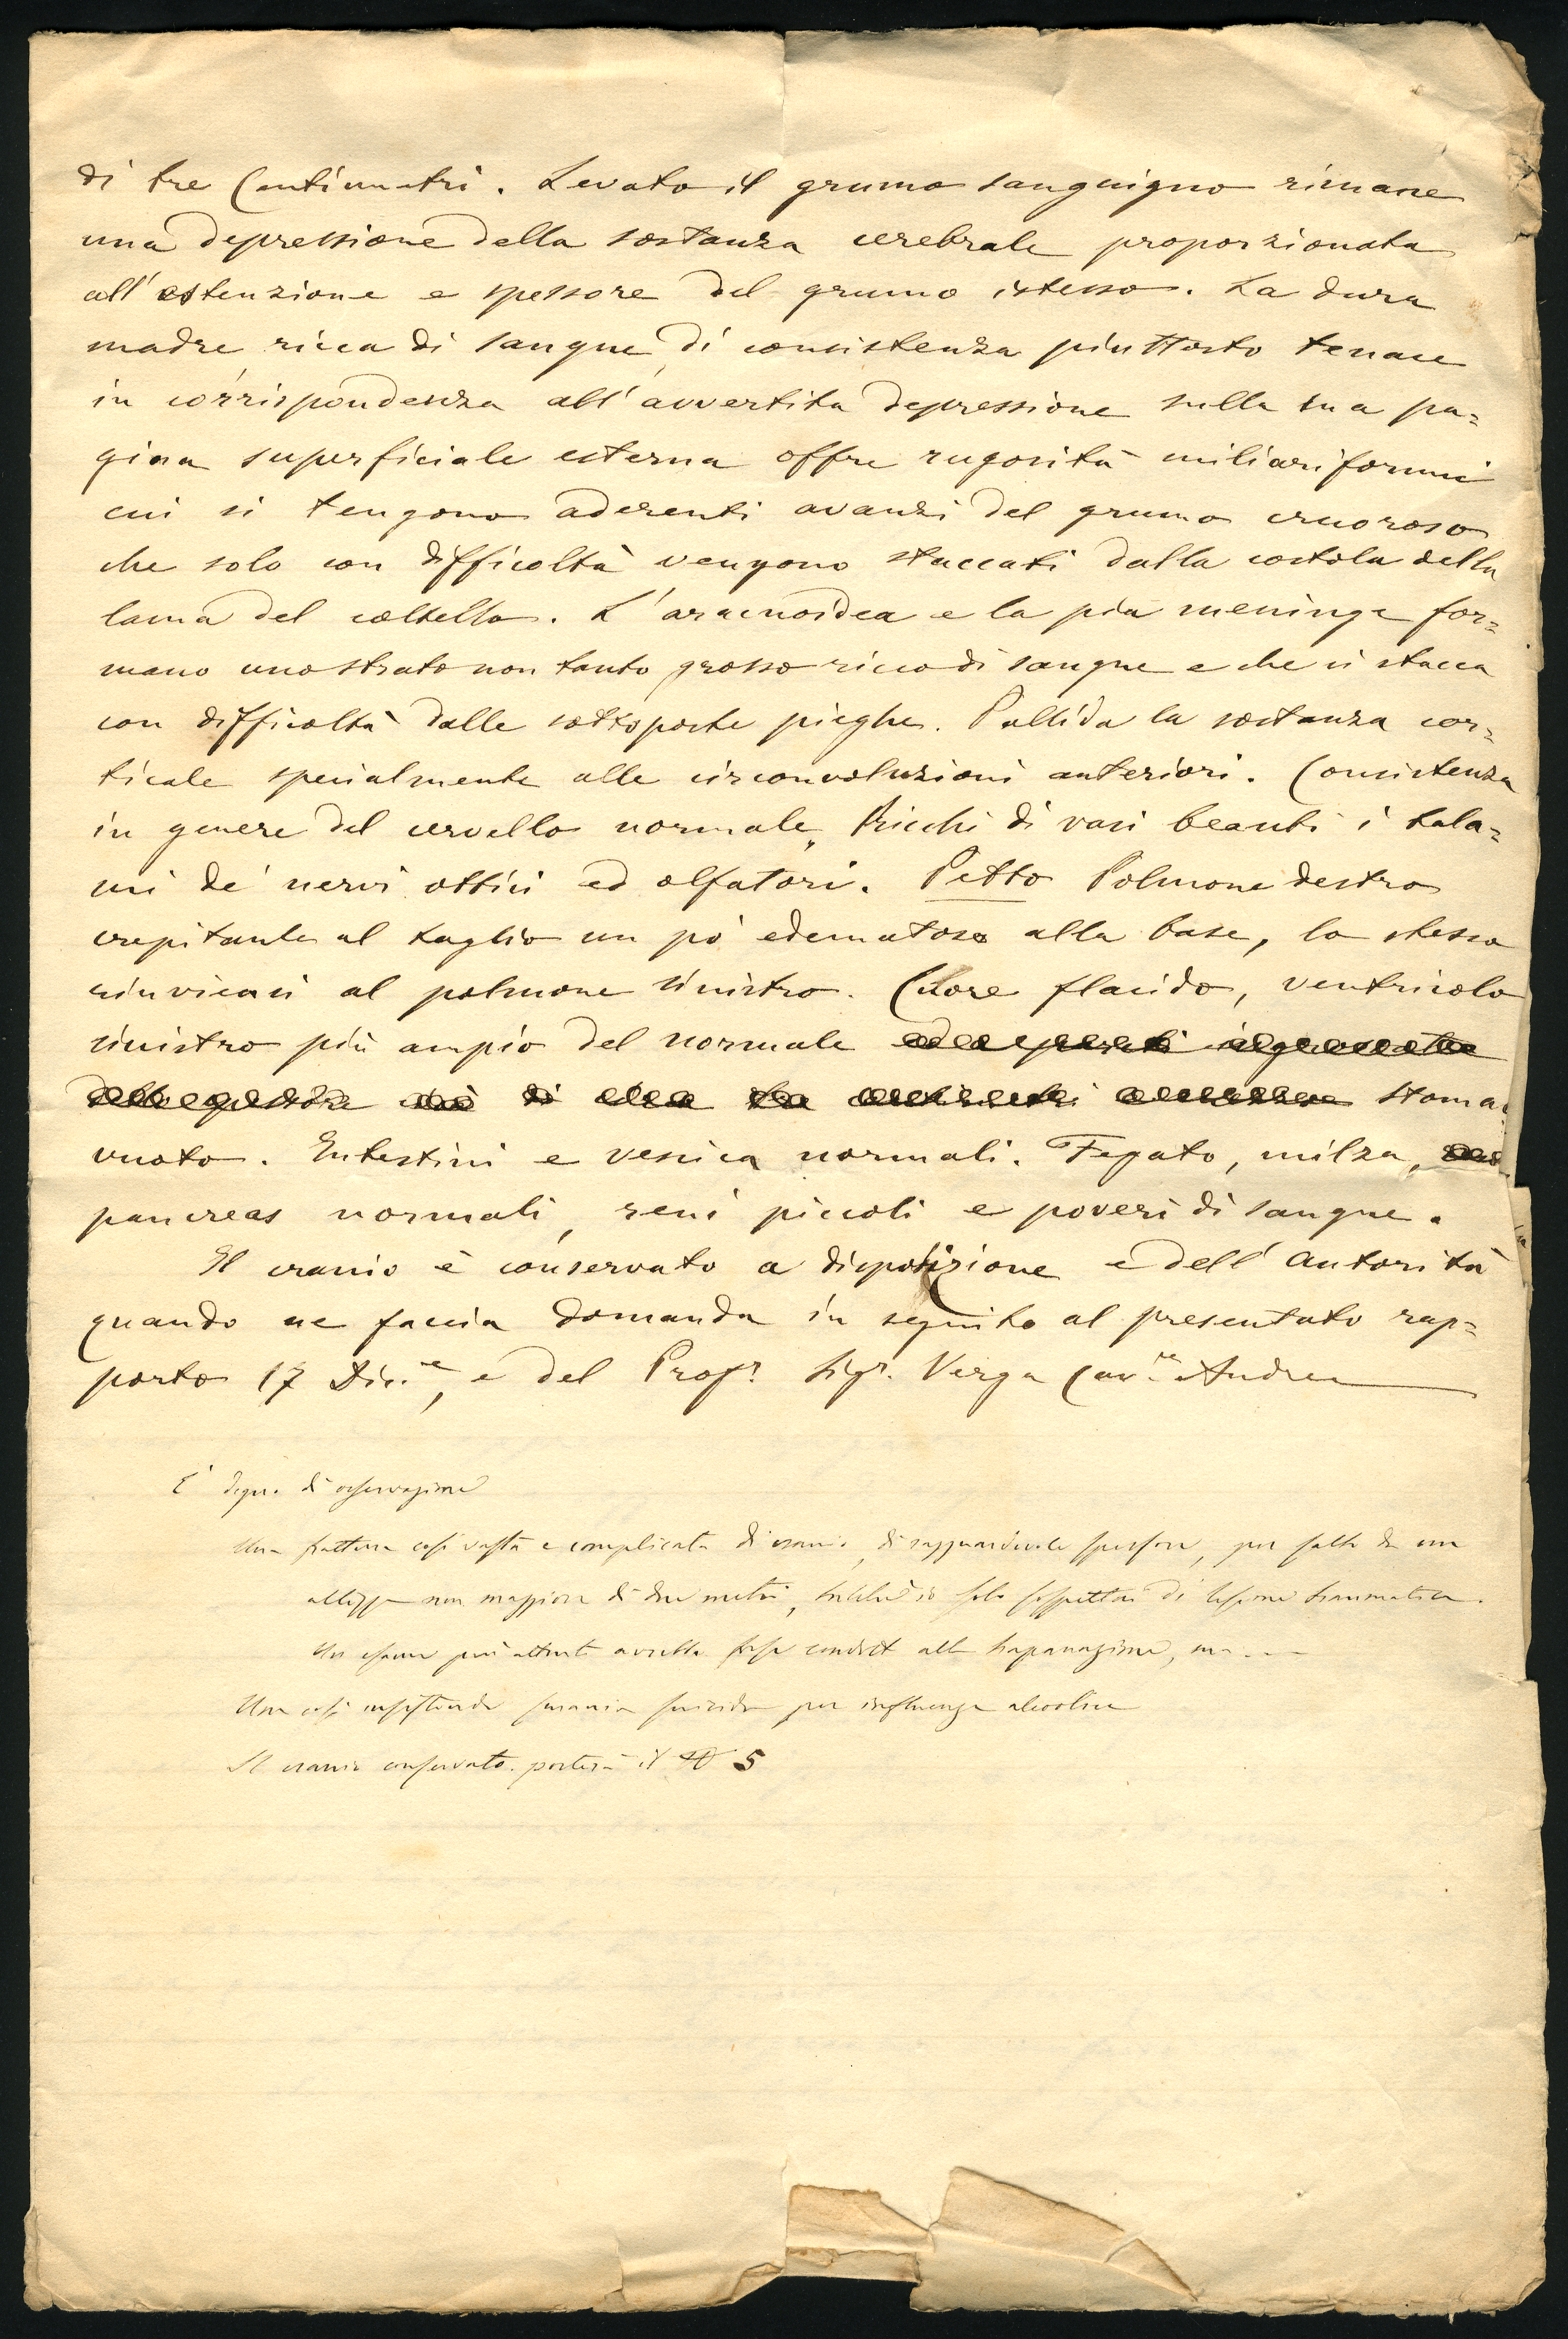 di tre Centimetri. Levato il grumo sanguigno rimane
una depressione della sostanza cerebrale proporzionata
all'estenzione e spessore del grumo istesso. La dura
madre ricca di sangue, di consistenza piuttosto tenace
in corrispondenza all'avvertita depressione sulla sua pa=
gina superficiale esterna offre rugosità miliariformi
cui si tengono aderenti avanzi del grumo cruoroso
che solo con difficoltà vengono staccati dalla costola della
lama del coltello. L'aracnoidea e la pia meninge for=
mano uno strato non tanto grosso ricco di sangue e che si stacca
con difficoltà dalle sottoposte pieghe. Pallida la sostanza cor=
ticale specialmente alle circonvoluzioni anteriori. Consistenza
in genere del cervello normale. Ricchi di vasi beanti i tala=
mi de' nervi ottici ed olfatori. Petto Polmone destro
crepitante al taglio un pò edematoso alla base, lo stesso
rinviensi al polmone sinistro. Cuore flacido, ventricolo
sinistro più ampio del normale
Stoma
vuoto. Intestini e vesica normali. Fegato, milza,
pancreas normali, reni piccoli e poveri di sangue.
Il cranio è conservato a disposizione e dell'Autorità
quando ne faccia domanda in seguito al presentato rap=
porto 17 Dic.e, e del Prof.r Sig.r Verga Cav.re Andrea
E' degna di osservazione
Una frattura così vasta e complicata di cranio, di ragguardevole spessore, per salto da una
altezza non maggiore di due metri, solo sospettasi di lesione traumatica.
Un esame più attento avrebbe forse condott alla trapanazione, ma....
Una così insistente smania suicida per influenza alcoolica
Il cranio conservato porterà il N 5